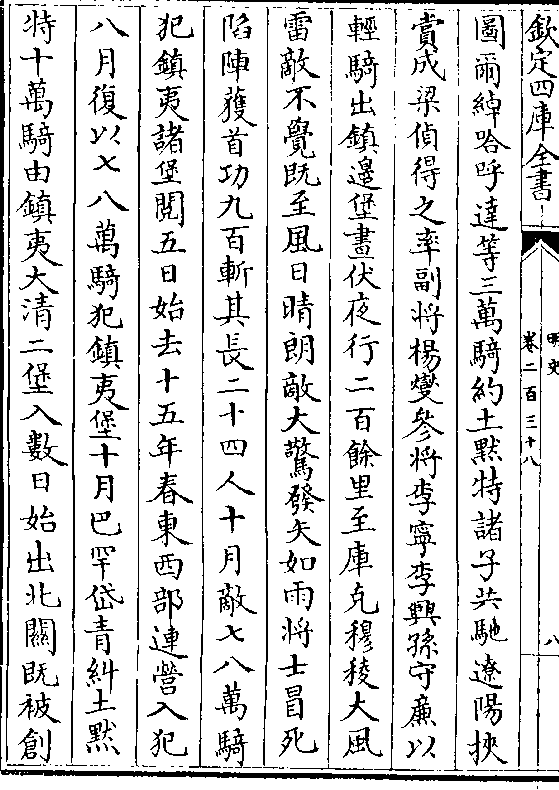 欽定四庫全書
明史
卷二百三十八
八
圖爾綽哈呼達等三萬騎約土黙特諸子共馳遼陽挾
賞成梁偵得之率副將楊燮參將李寧李興孫守廉以
輕騎出鎮邊堡晝伏夜行二百餘里至庫克穆稜大風
雷敵不覺既至風日晴朗敵大驚發矢如雨將士冒死
陷陣獲首功九百斬其長二十四人十月敵七八萬騎
犯鎮夷諸堡閱五日始去十五年春東西部連營入犯
八月復以七八萬騎犯鎮夷堡十月巴罕岱青糾土黙
特十萬騎由鎮夷大清二堡入數日始出北關既被創